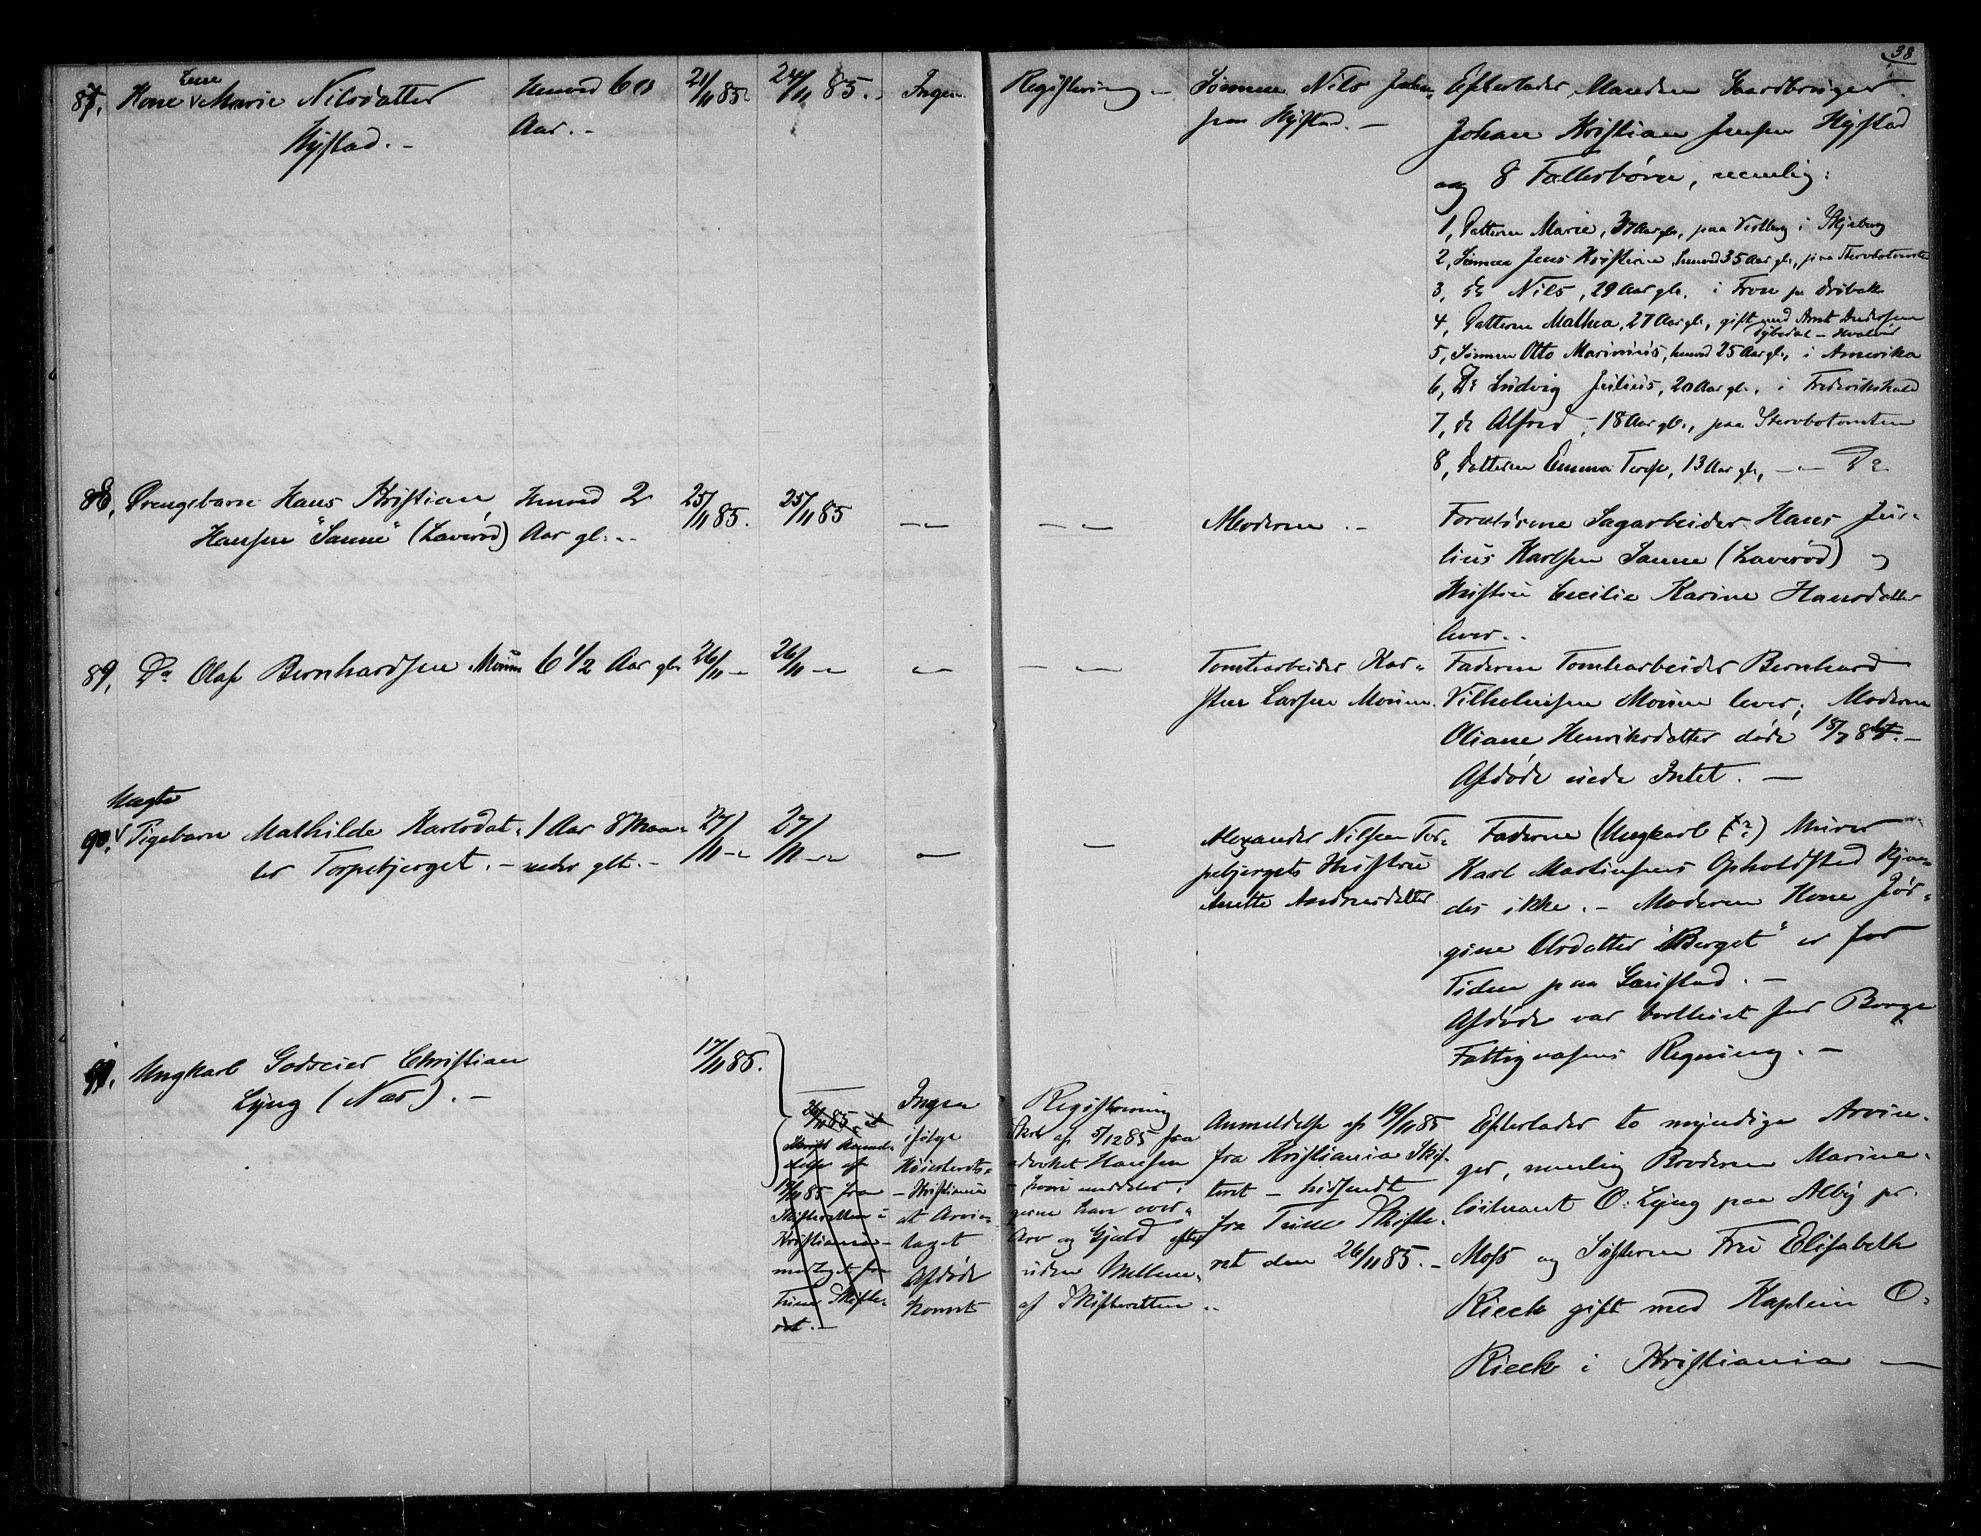 38
87, Kone Lene Marie Nilsdatter
Hystad. -
henved 60
Aar. -
21/11 85.
24/11 85. -
Ingen.
Registrering -
Sønnen Nils Johan-
paa Hystad. -
Efterlader Manden Gaardbruger
Johan Kristian Jensen Hystad
og 8 Fællesbørn, nemlig:
1, Datteren Marie, 37 Aar gl., paa Vestberg i Skjeberg
2, Sønnen Jens Kristian, henved 35 Aar gl., paa Stervbotomten
3, do Nils, 29 Aar gl. i Fron pr Drøbak
4, Datteren Mathea, 27 Aar gl., gift med Arnt Andersen
5, Sønnen Otto Marinius, henved 25 Aar gl., i Amerika
6, Do Ludvig Julius, 20 Aar gl., i Frederikshald
7, do Alfred, 18 Aar gl., paa Stervbotomten
8, Datteren Emma 13 Aar gl., -"- Do
88, Drengebarn Hans Kristian
Hansen "Sanne" (Laverød)
henved 2
Aar gl. -
25/11 85.
25/11 85
-"-
- -"-
Moderen. -
Forældrene Sagarbeider Hans Ju-
lius Karlsen Sanne (Laverød) og
Hustru Cecilie Karine Hansdatter
lever. -
89, Do Olaf Bernhardsen Moum
6 1/2 Aar gl.
26/11 -"-
26/11 -"-
-"-
- -"-
Tomtearbeider Kar-
sten Larsen Moum.
Faderen Tomtearbeider Bernhard
Vilhelmsen Moum lever; Moderen
Oliane Henriksdatter døde 18/7 85. -
Afdøde eiede Intet. -
90, Uægte Pigebarn Mathilde Karlsdat-
ter Torpebjerget. -
1 Aar 8 Maa-
neder glt. -
27/11 -"-
27/11 -"-
-"-
-
Alexander Nilsen Tor-
pebjergets Hustru
Anette Andreasdatter
Faderen (Ungkarl ?) Murer
Karl Martinsens Opholdssted kjen-
des ikke. - Moderen Kone Jør-
gine Olsdatter "Berget" er for
Tiden paa Gaustad. -
Afdøde var bortleiet for Borge
Fattigvæsens Regning. -
91, Ungkarl Godseier Christian
Lyng (Næs). -
17/11 85.
26/11 85. -
Anmel-
delse af
19/11 85 fra
Skifteretten i
Kristiania -
modtaget fra
Tune Skifte-
ret. -
Ingen
ifølge
Høiesterets-
- Kristiania
at Arvin-
taget
Afdøde
komst
Registrering
Skr. af 5/12 85 fra
advokat Hansen
- hvori meddeles,
gerne have over-
Arv og Gjæld efter
uden Mellem-
af Skifteretten. -
Anmeldelse af 19/11 85
fra Kristiania Skif-
teret - hidsendt
fra Tune Skifte-
ret den 26/11 85. -
Efterlader to myndige Arvin-
ger, nemlig Broderen Marine-
løitnant O. Lyng paa Alby pr.
Moss og Søsteren Fru Elisabeth
Rieck gift med Kaptein O.
Rieck i Kristiania -